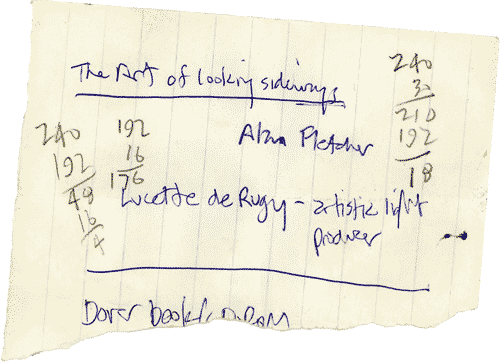 The Art of looking sideways
Alan Fletcher
Lucette de Rugy - artistic light
producer
Dover book
240
30
210
192
18
240
192
48
16
4
192
16
176